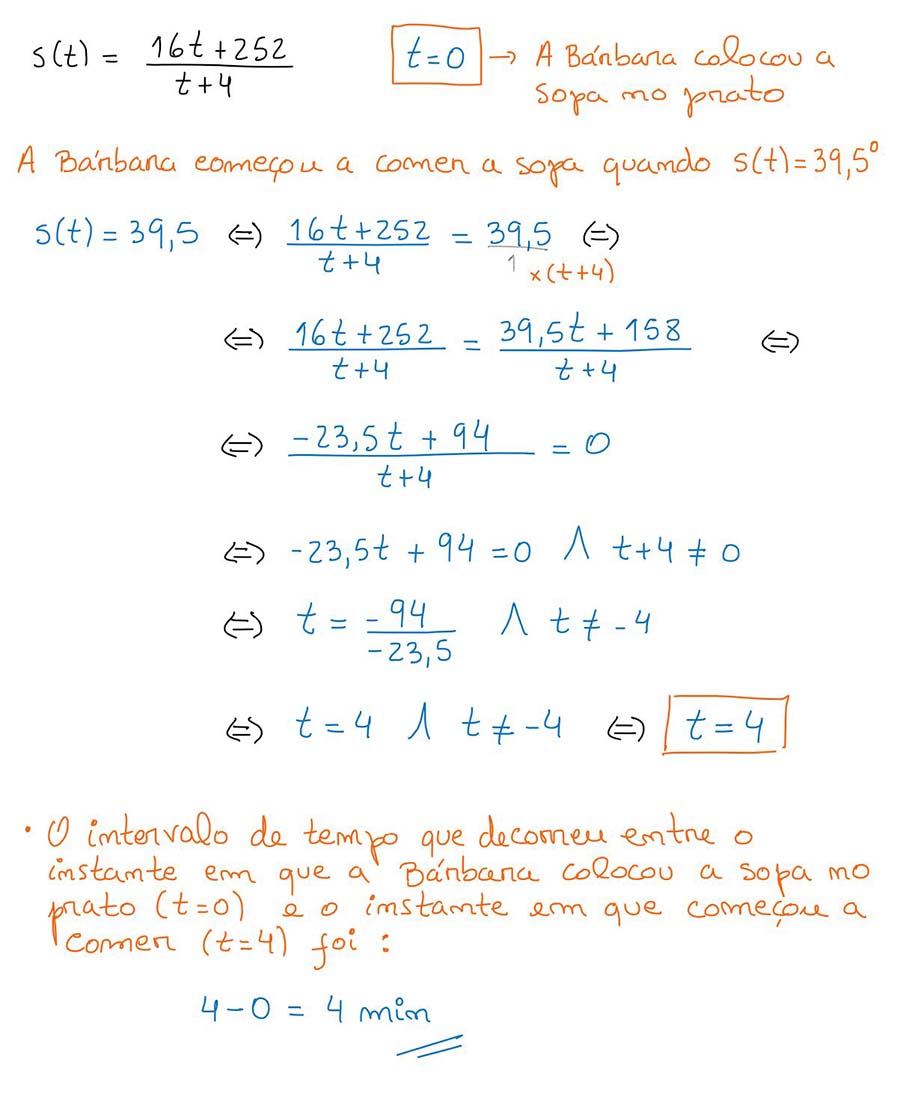 s(t) = (16t+252)/(t+4)   t=0 → A Bárbara colocou a
sopa no prato
A Bárbara começou a comer a sopa quando s(t)=39,5º
s(t) = 39,5 ⇔ (16t+252)/(t+4) = 39,5/1 ⇔
×(t+4)
⇔ (16t+252)/(t+4) = (39,5t + 158)/(t+4) ⇔
⇔ (-23,5t + 94)/(t+4) = 0
⇔ -23,5t + 94 = 0 ∧ t+4 ≠ 0
⇔ t = -94/-23,5 ∧ t ≠ -4
⇔ t = 4 ∧ t ≠ -4 ⇔ t = 4
• O intervalo de tempo que decorreu entre o
instante em que a Bárbara colocou a sopa no
prato (t=0) e o instante em que começou a
comer (t=4) foi :
4-0 = 4 min